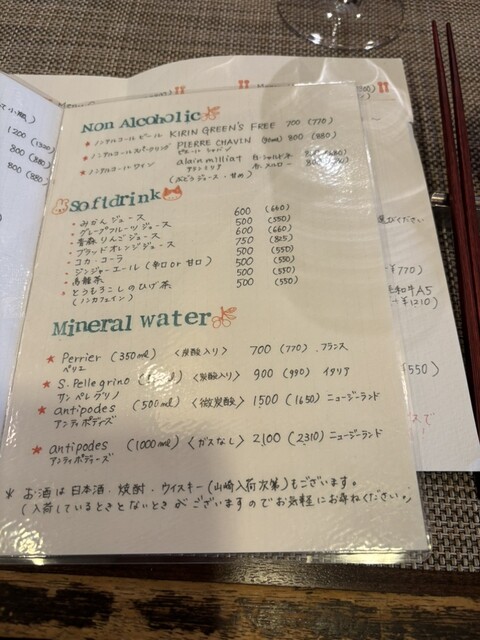 1200 (1320)
800 (880)
800 (880)
Non Alcoholic
★ ノンアルコールビール KIRIN GREEN'S FREE 700 (770)
★ ノンアルコールスパークリング PIERRE CHAVIN 800 (880)
ピエール シャバン
★ ノンアルコールワイン alain milliat
(ぶどうジュース・甘め)
Softdrink
・みかんジュース 600 (660)
・グレープフルーツジュース 500 (550)
・青森りんごジュース 600 (660)
・ブラッドオレンジジュース 750 (825)
・コカ・コーラ 500 (550)
・ジンジャーエール (辛口 or 甘口) 500 (550)
・烏龍茶 500 (550)
・とうもろこしのひげ茶 500 (550)
(ノンカフェイン)
Mineral water
★ Perrier (350ml) 〈炭酸入り〉 700 (770) フランス
ペリエ
★ S.Pellegrino 〈炭酸入り〉 900 (990) イタリア
サンペレグリノ
★ antipodes (500ml) 〈微炭酸〉 1500 (1650) ニュージーランド
アンティポディーズ
★ antipodes (1000ml) 〈ガスなし〉 2100 (2310) ニュージーランド
アンティポディーズ
* お酒は日本酒・焼酎・ウイスキー(山崎入荷次第)もございます。
(入荷しているときとないときがございますのでお気軽にお尋ねください。)
¥770)
和牛A5
¥1210)
(550)